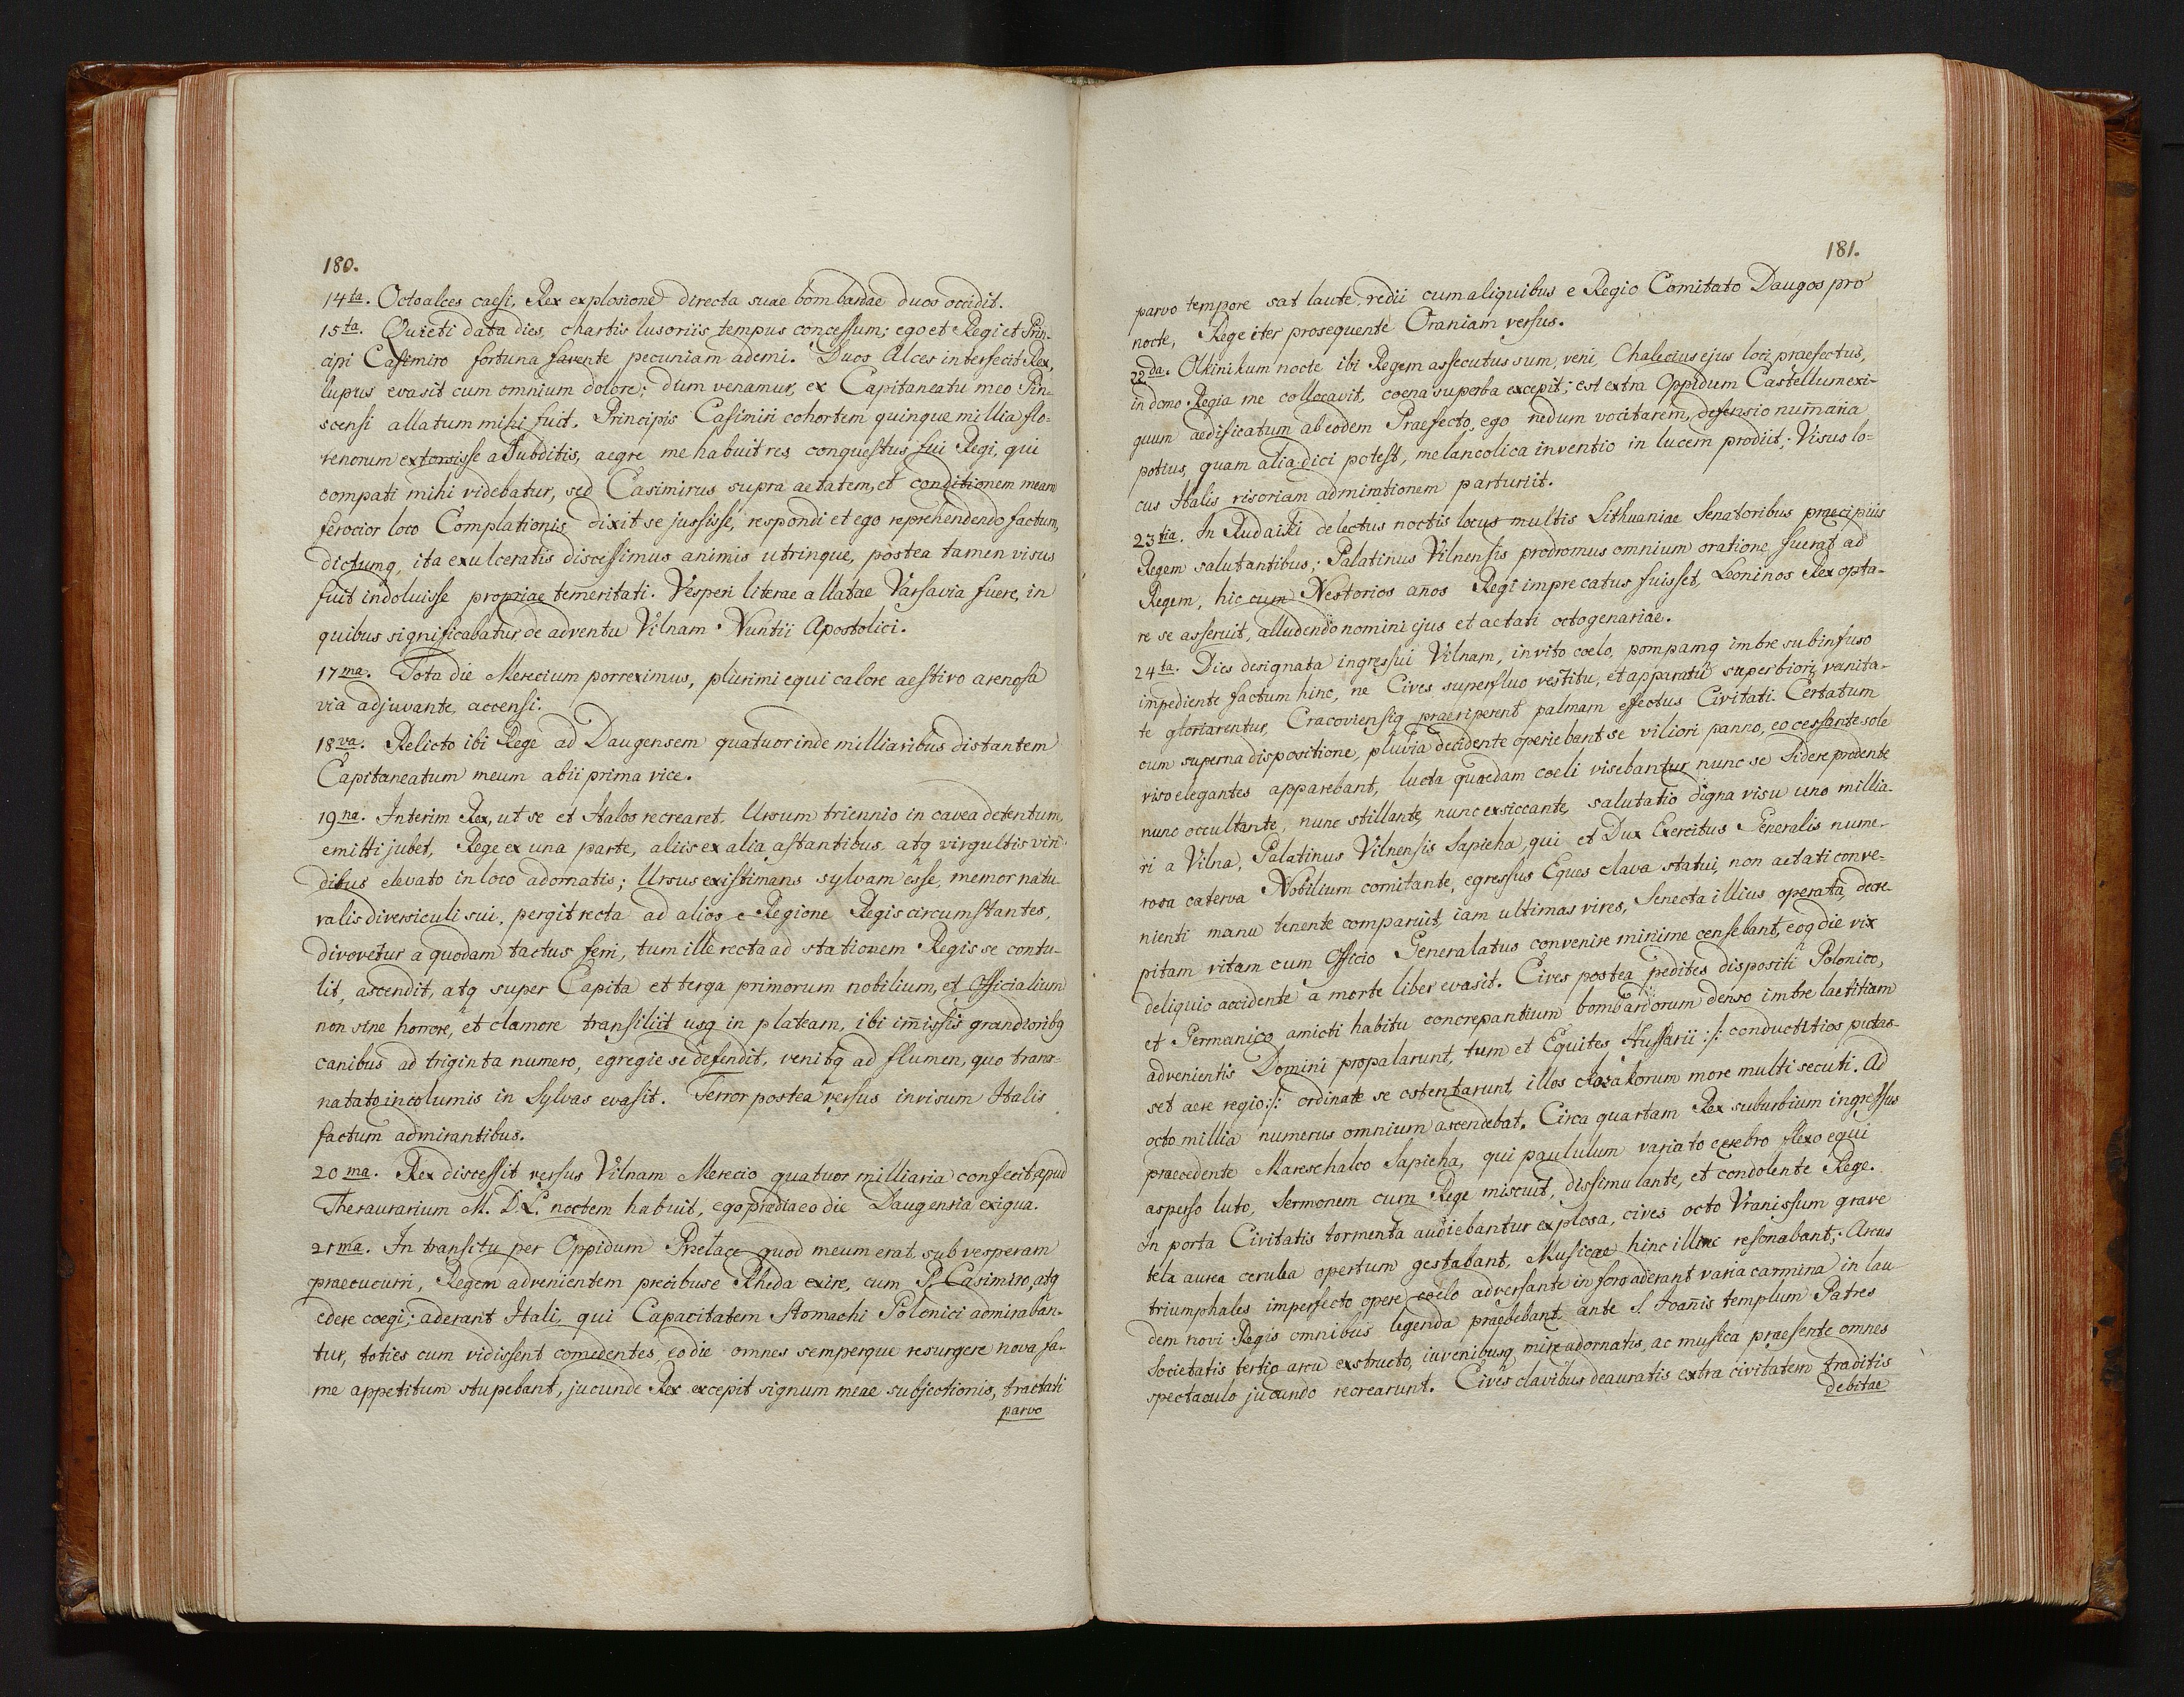 180.
14ta. Octo alces caesi, Rex explosione directa suae bombardae duos occidit.
15ta. Quieti data dies, chartis lusoriis tempus concessum; ego et Regi et Prin-
cipi Casimiro fortuna favente pecuniam ademi. Duos Alces interfecit Rex,
lupus evasit cum omnium dolore; dum venamur, ex Capitaneatu meo Pin-
scensi allatum mihi fuit. Principis Casimiri cohortem quinque millia flo-
renorum extorsisse a Subditis, aegre me habuit res, conquestus fui Regi, qui
compati mihi videbatur, sed Casimirus supra aetatem, et conditionem meam
ferocior loco Complationis dixit se jussisse, respondi et ego reprehendendo factum,
dictumq, ita exulceratis discessimus animis utrinque, postea tamen visus
fuit indoluisse propriae temeritati. Vesperi literae allatae Varsavia fuere, in
quibus significabatur de adventu Vilnam Nuntii Apostolici.
17ma. Tota die Merecium porreximus, plurimi equi calore aestivo arenosa
via adjuvante, accensi.
18va. Relicto ibi Rege ad Daugensem quatuor inde milliaribus distantem
Capitaneatum meum abii prima vice.
19na. Interim Rex, ut se et Italos recrearet, Ursum triennio in cavea detentum,
emitti jubet, Rege ex una parte, aliis ex alia astantibus, atq virgultis viri-
dibus elevato in loco adornatis; Ursus existimans sylvam esse, memor natu-
ralis diversiculi sui, pergit recta ad alios e Regione Regis circumstantes,
divovetur a quodam tactus feri, tum ille recta ad stationem Regis se contu-
lit, ascendit, atq super Capita et terga primorum nobilium, et Officialium
non sine horrore, et clamore transiliit usq in plateam, ibi imissis grandiorib9
canibus ad triginta numero, egregie se defendit, venitq ad flumen, quo trans-
natato incolumis in Sylvas evasit. Terror postea versus in risum Italis
factum admirantibus.
20ma. Rex discessit versus Vilnam Merecio quatuor milliaria confecit, apud
Thesaurarium M. D. L. noctem habuit, ego praedia eo die Daugensia exigua.
21ma. In transitu per Oppidum Przelaje quod meum erat sub vesperam
praecucurri, Regem advenientem precibus e Rheda exire, cum P. Casimiro, atq
edere coegi; aderant Itali, qui Capacitatem Stomachi Polonici admiraban-
tur, toties cum vidissent comedentes, eo die omnes semperque resurgere nova fa-
me appetitum stupebant, jucunde Rex excepit signum meae subjectionis, tractati
parvo
181.
parvo tempore sat laute, redii cum aliquibus e Regio Comitato Daugos pro
nocte, Rege iter prosequente Oraniam versus.
22da. Olkinikum nocte ibi Regem assecutus sum, veni, Chalecius ejus loci praefectus,
in domo Regia me collocavit, coena superba excepit; est extra Oppidum Castellum exi-
guum aedificatum ab eodem Praefecto, ego nidum vocitarem, defensio numaria
potius, quam alia dici potest, melancolica inventio in lucem prodiit; Visus lo-
cus Italis risoriam admirationem parturiit.
23tia. In Rudaiki delectus noctis locus multis Lithuaniae Senatoribus praecipuis
Regem salutantibus; Palatinus Vilnensis prodromus omnium oratione fuerat ad
Regem, hic cum Nestorios anos Regi imprecatus fuisset, Leoninos Rex opta-
re se asseruit, alludendo nomini ejus et aetati octogenariae.
24ta. Dies designata ingressui Vilnam, invito coelo, pompamq imbre subinfuso
impediente factum hinc, ne Cives superfluo vestitu, et apparatu superbiori vanita-
te gloriarentur, Cracoviensiq praeriperent palmam effectus Civitati. Certatum
cum superna dispositione, pluvia decidente operiebant se viliori panno, eo cessante sole
viso elegantes apparebant, lucta quaedam coeli visebantur nunc se Sidere prodente
nunc occultante, nunc stillante, nunc exsiccante, salutatio digna visu uno millia-
ri a Vilna, Palatinus Vilnensis Sapieha, qui et Dux Exercitus Generalis nume-
rosa caterva Nobilium comitante, egressus Eques clava statui, non aetati conve-
nienti manu tenente comparuit, iam ultimas vires, Senecta illius operata, decre-
pitam vitam cum Officio Generalatus convenire minime censebant, eoq die vix
deliquio accidente a morte liber evasit. Cives postea pedites dispositi Polonico,
et Germanico amicti habitu concrepantium bombardorum denso imbre laetitiam
advenientis Domini propalarunt, tum et Equites Hussarii :/: conductitios putas-
set aere regio :/: ordinate se ostentarunt, illos Cozakorum more multi secuti. Ad
octo millia numerus omnium ascendebat. Circa quartam Rex suburbium ingressus
praecedente Mareschalco Sapieha, qui paululum variato cerebro flexo equi
asperso luto, Sermonem cum Rege miscuit, dissimulante, et condolente Rege.
In porta Civitatis tormenta audiebantur explosa, cives octo Vranissum grave
tela aurea cerulea opertum gestabant, Musicae hinc illinc resonabant; Arcus
triumphales imperfecto opere coelo adversante in foro aderant varia carmina in lau
dem novi Regis omnibus legenda praebebant, ante S. Joanis templum Patres
Societatis tertio arcu exstructo, iuvenibusq mire adornatis, ac musica praesente omnes
spectaculo jucundo recrearunt. Cives clavibus deauratis extra civitatem traditis
debitae